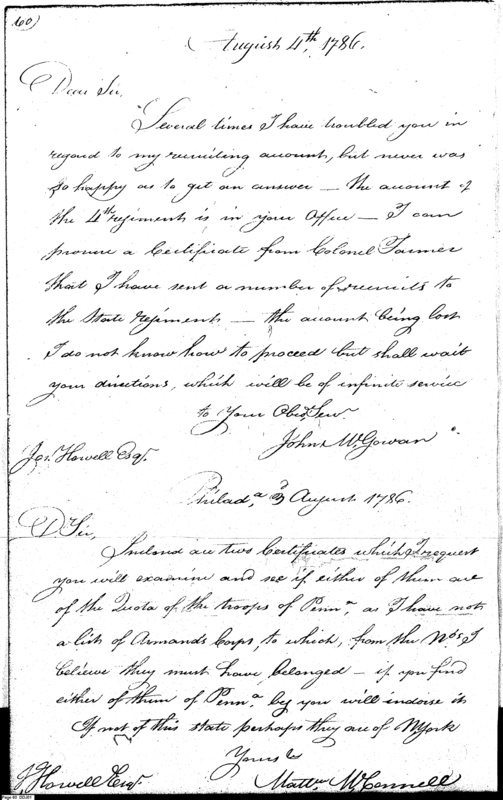 60)
August 4th, 1786.
Dear Sir,
Several times I have troubled you in
regard to my recruiting account, but never was
so happy as to get an answer — the account of
the 4th regiment is in your Office — I can
procure a Certificate from Colonel Farmer
that I have sent a number of recruits to
the State regiment — the account being lost
I do not know how to proceed but shall wait
your directions, which will be of infinite service
to Your Obt. Serv.
John McGowan
Jos. Howell Esqr.
Philada, 3 August 1786.
D Sir,
Inclosed are two Certificates which I request
you will examine and see if either of them are
of the Quota of the troops of Penna, as I have not
a list of Armands Corps, to which, from the Nos, I
believe they must have belonged — if you find
either of them of Penna by you will endorse it
If not of this state perhaps they are of NYork
Yours &c
Mattw McConnell
J Howell Esqr.
Page 60: DDJ01